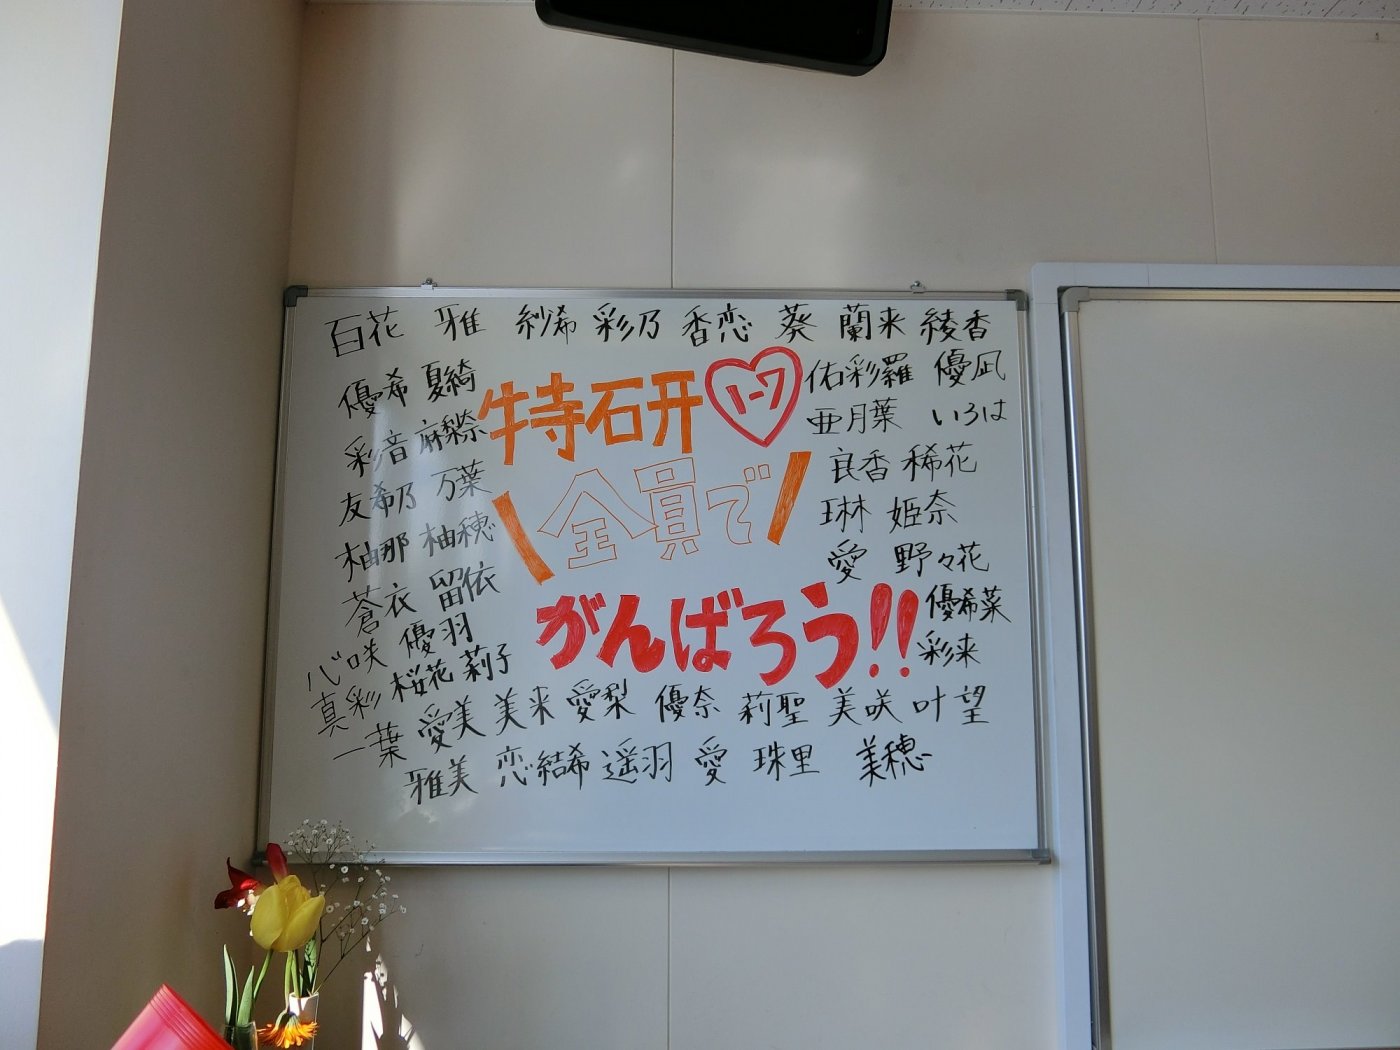 百花 雅 紗希 彩乃 香恋 葵 蘭来 綾香
優希 夏綺 特研 1-7 佑彩羅 優凪
彩音 麻梨奈 亜月葉 いろは
友希乃 万葉 \全員で/ 良香 稀花
柚那 柚穂 琳 姫奈
蒼衣 留依 愛 野々花
心咲 優羽 がんばろう!! 優希菜
真彩 桜花 莉子 彩来
一葉 愛美 美来 愛梨 優奈 莉聖 美咲 叶望
雅美 恋結希 遥羽 愛 珠里 美穂